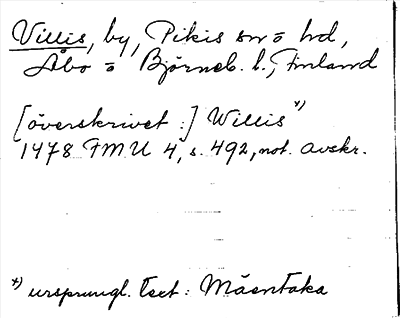 Villis, by, Pikis sn o hd,
Åbo o Björneb. l., Finland
[överskrivet :] Willis *)
1478 FMU 4, s. 492, not. avskr.
*) ursprungl. text : Mäentaka